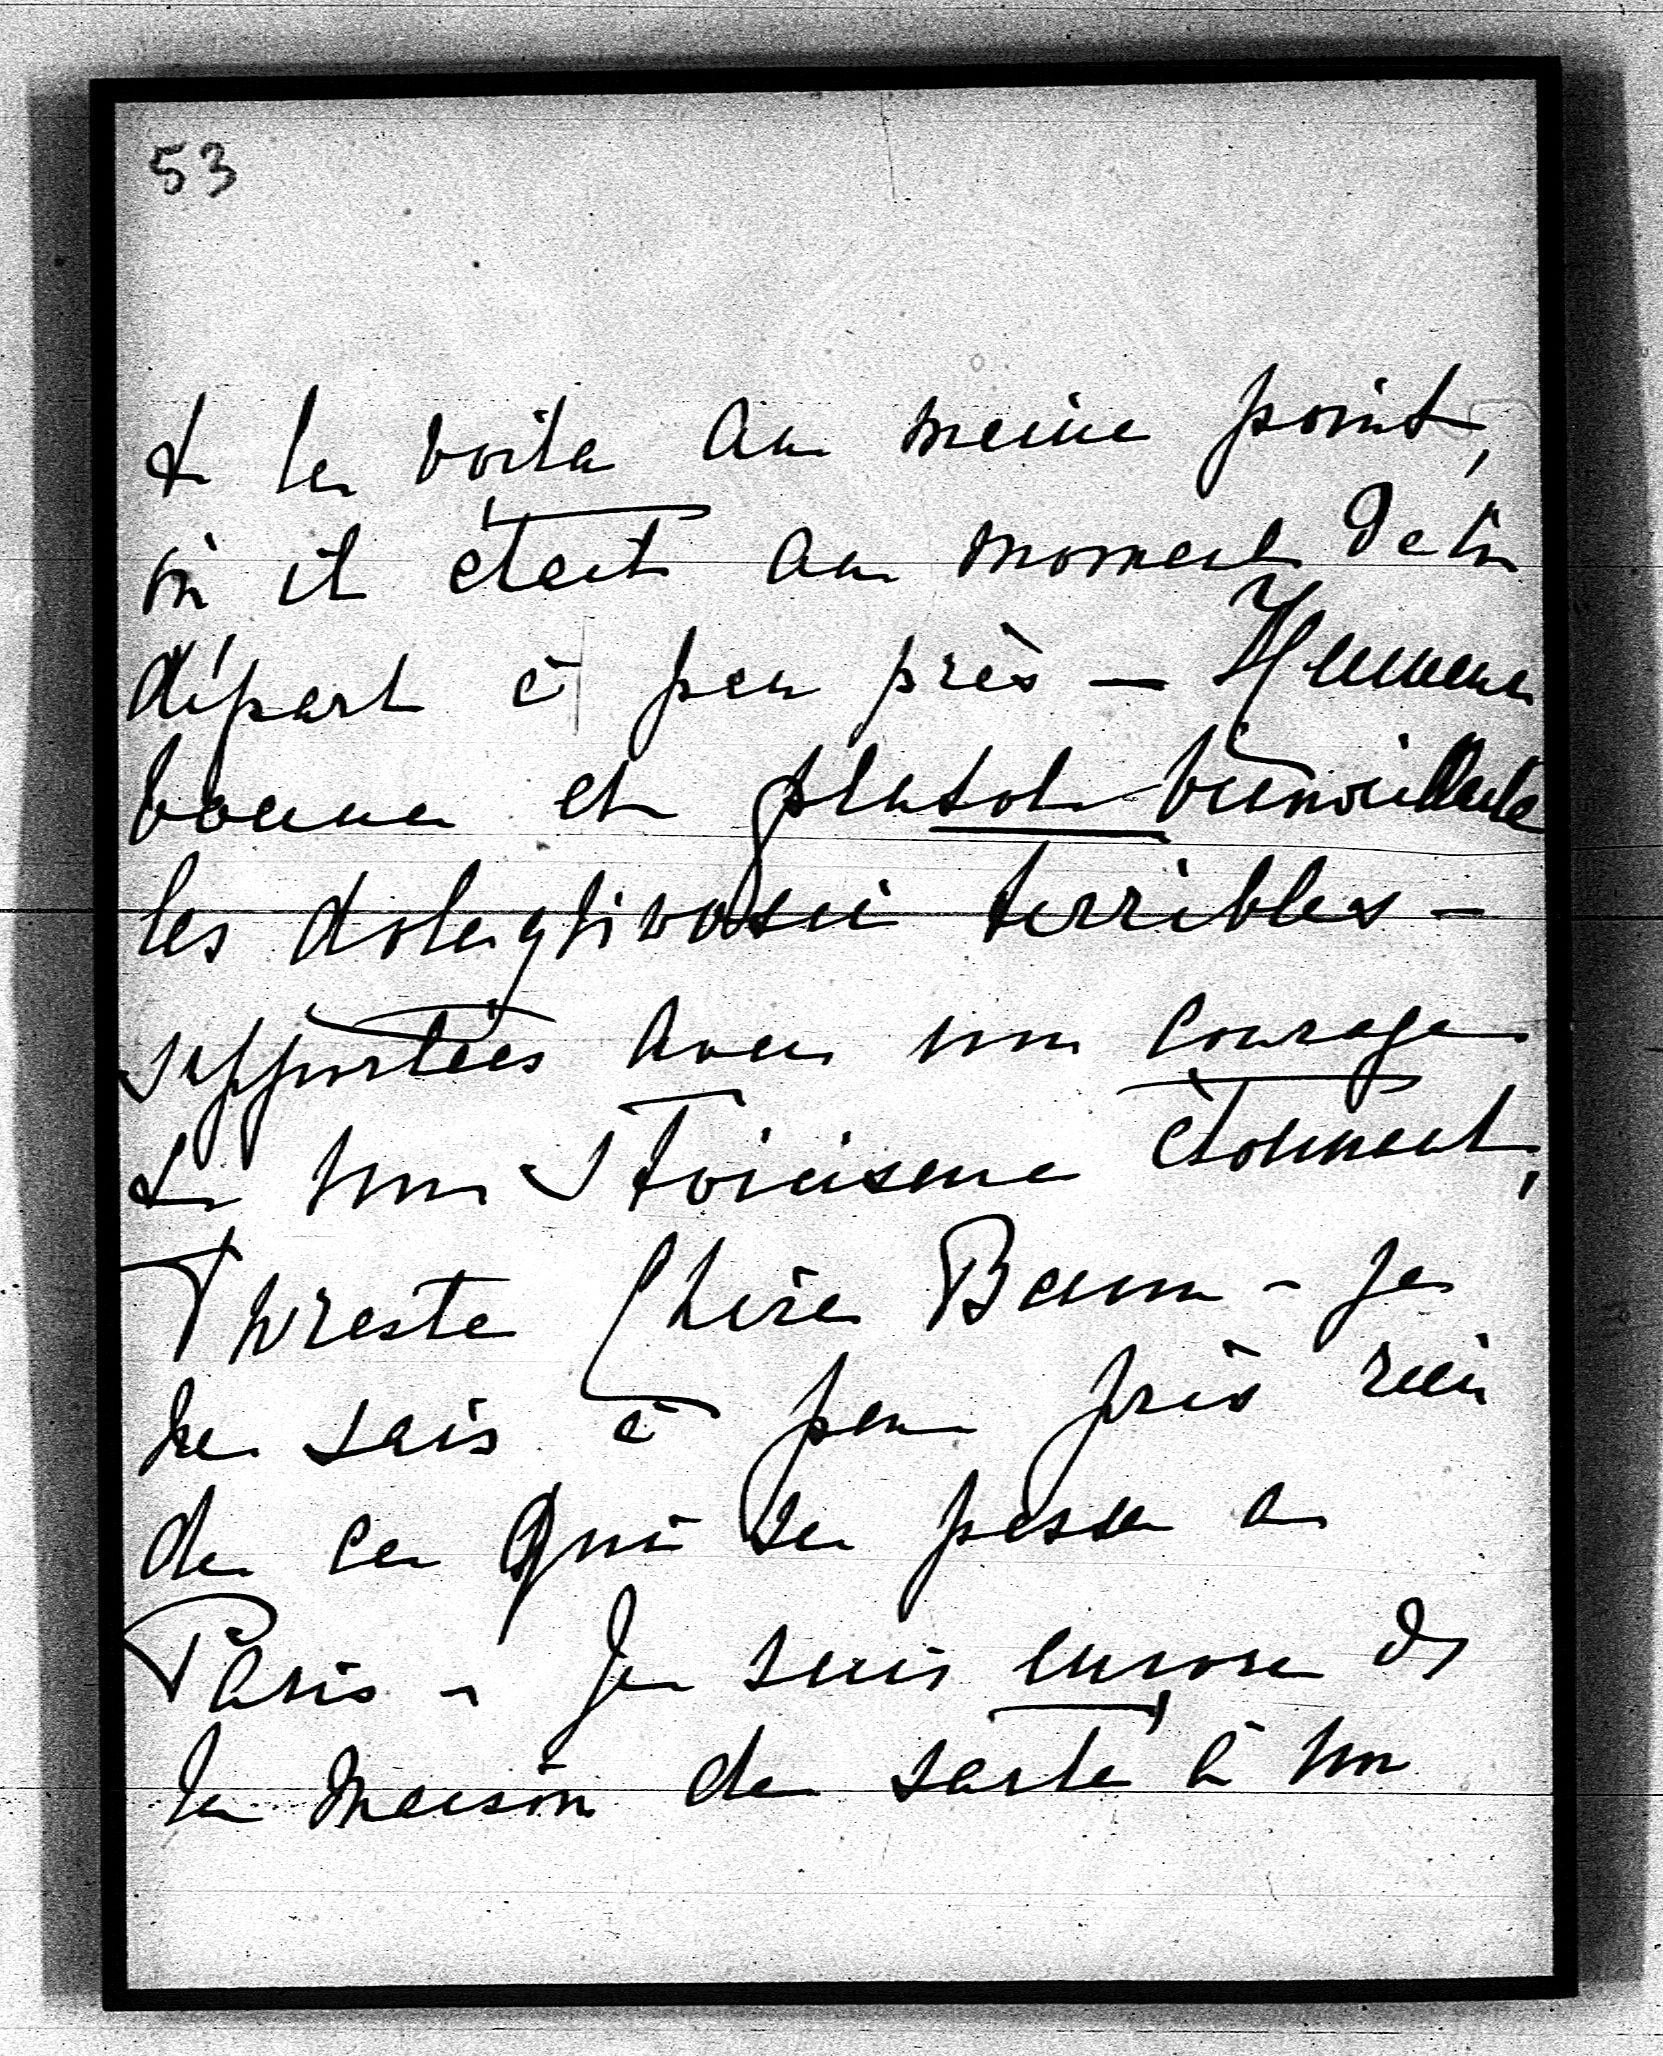 53
& le voila au meme point,
où il etait au moment de ton
départ à peu près — Humeur
bonne et plutot bienveillante
les doleurs aussi terribles —
supportées avec un courage
& un stoicisme étonnant,
Thoreste Chère Beum - je
ne sais à peu près rien
de ce qui se passe a
Paris - Je suis encore ds
la maison de santé à un